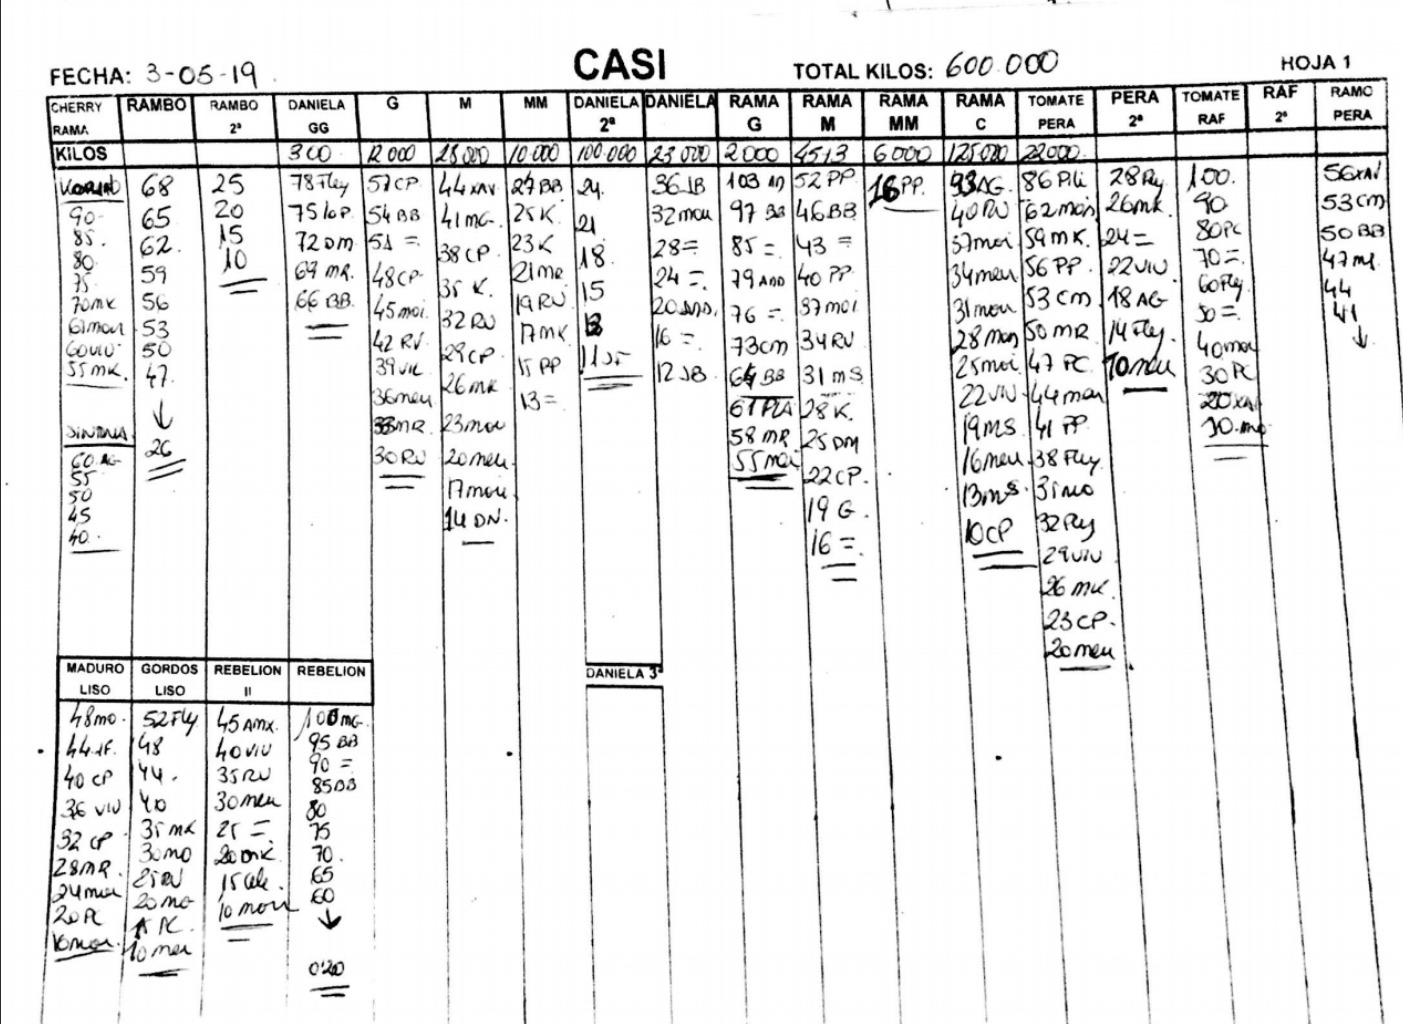 CASI
FECHA: 3-05-19. TOTAL KILOS: 600.000 HOJA 1
CHERRY RAMA RAMBO RAMBO 2ª DANIELA GG G M MM DANIELA 2ª DANIELA RAMA G RAMA M RAMA MM RAMA C TOMATE PERA PERA 2ª TOMATE RAF RAF 2ª RAMO PERA
KILOS 300 12000 28000 10.000 100.000 23000 2000 4513 6000 125000 22000
90
85.
80
75
70MK
55MK.
60 AG
55
50
45
40.
68
65
62.
59
56
53
50
47.
↓
26
25
20
15
10
78Fley
75
72DM
69 MR.
66 BB.
57CP
54BB
51 =
48CP
45moi
42 RV
36meu
33MR.
30RV
44XAV
41MG.
38CP
35 K.
32RV
29CP
26MK
23mou
20meu
17mou
14 DN.
27BB
25K.
23K
21MR
19RV
17MK
15 PP
13=
24.
21
18.
15
13
36JB
32mou
28=
24 =.
16 =.
12 JB
103
97 BB
85 =.
79
76 =.
73cm
64BB
61
58 MR
55moi
52 PP
46BB
43 =
40 PP
37moi
34RV
31ms
28K.
25DM
22CP.
19 G.
16 =.
16PP.
93AG.
40RV
37moi
34meu
31mou
28mon
25moi
22VIV
19MS
16meu
13ms.
10CP
86
62
59MK.
56 PP.
53 cm
50 MR
47 PC
44
41 PP.
38Fley
32Fley
29VIV
26 MK.
23CP.
20meu
28
26MK.
24=
22VIV
18AG
14Fley.
10meu
100.
90
80PC
70=
60Fley
50=.
40mou
30PC
20XAV
10
56XAV
53cm
50BB
47
44
41
↓
MADURO LISO GORDOS LISO REBELION II REBELION DANIELA 3ª
48mo.
44JF.
40 CP
36 VIV
32 CP
28MR.
24
20PC
16mou.
52Fley
48
44.
40
35MK
30mo
25RV
20mo
15 PC.
10meu
45AMX.
40VIV
35RV
30meu
25 =.
20
15
10mou
100MG.
95BB
90 =
85BB
80
75
70.
65
60
↓
0'20